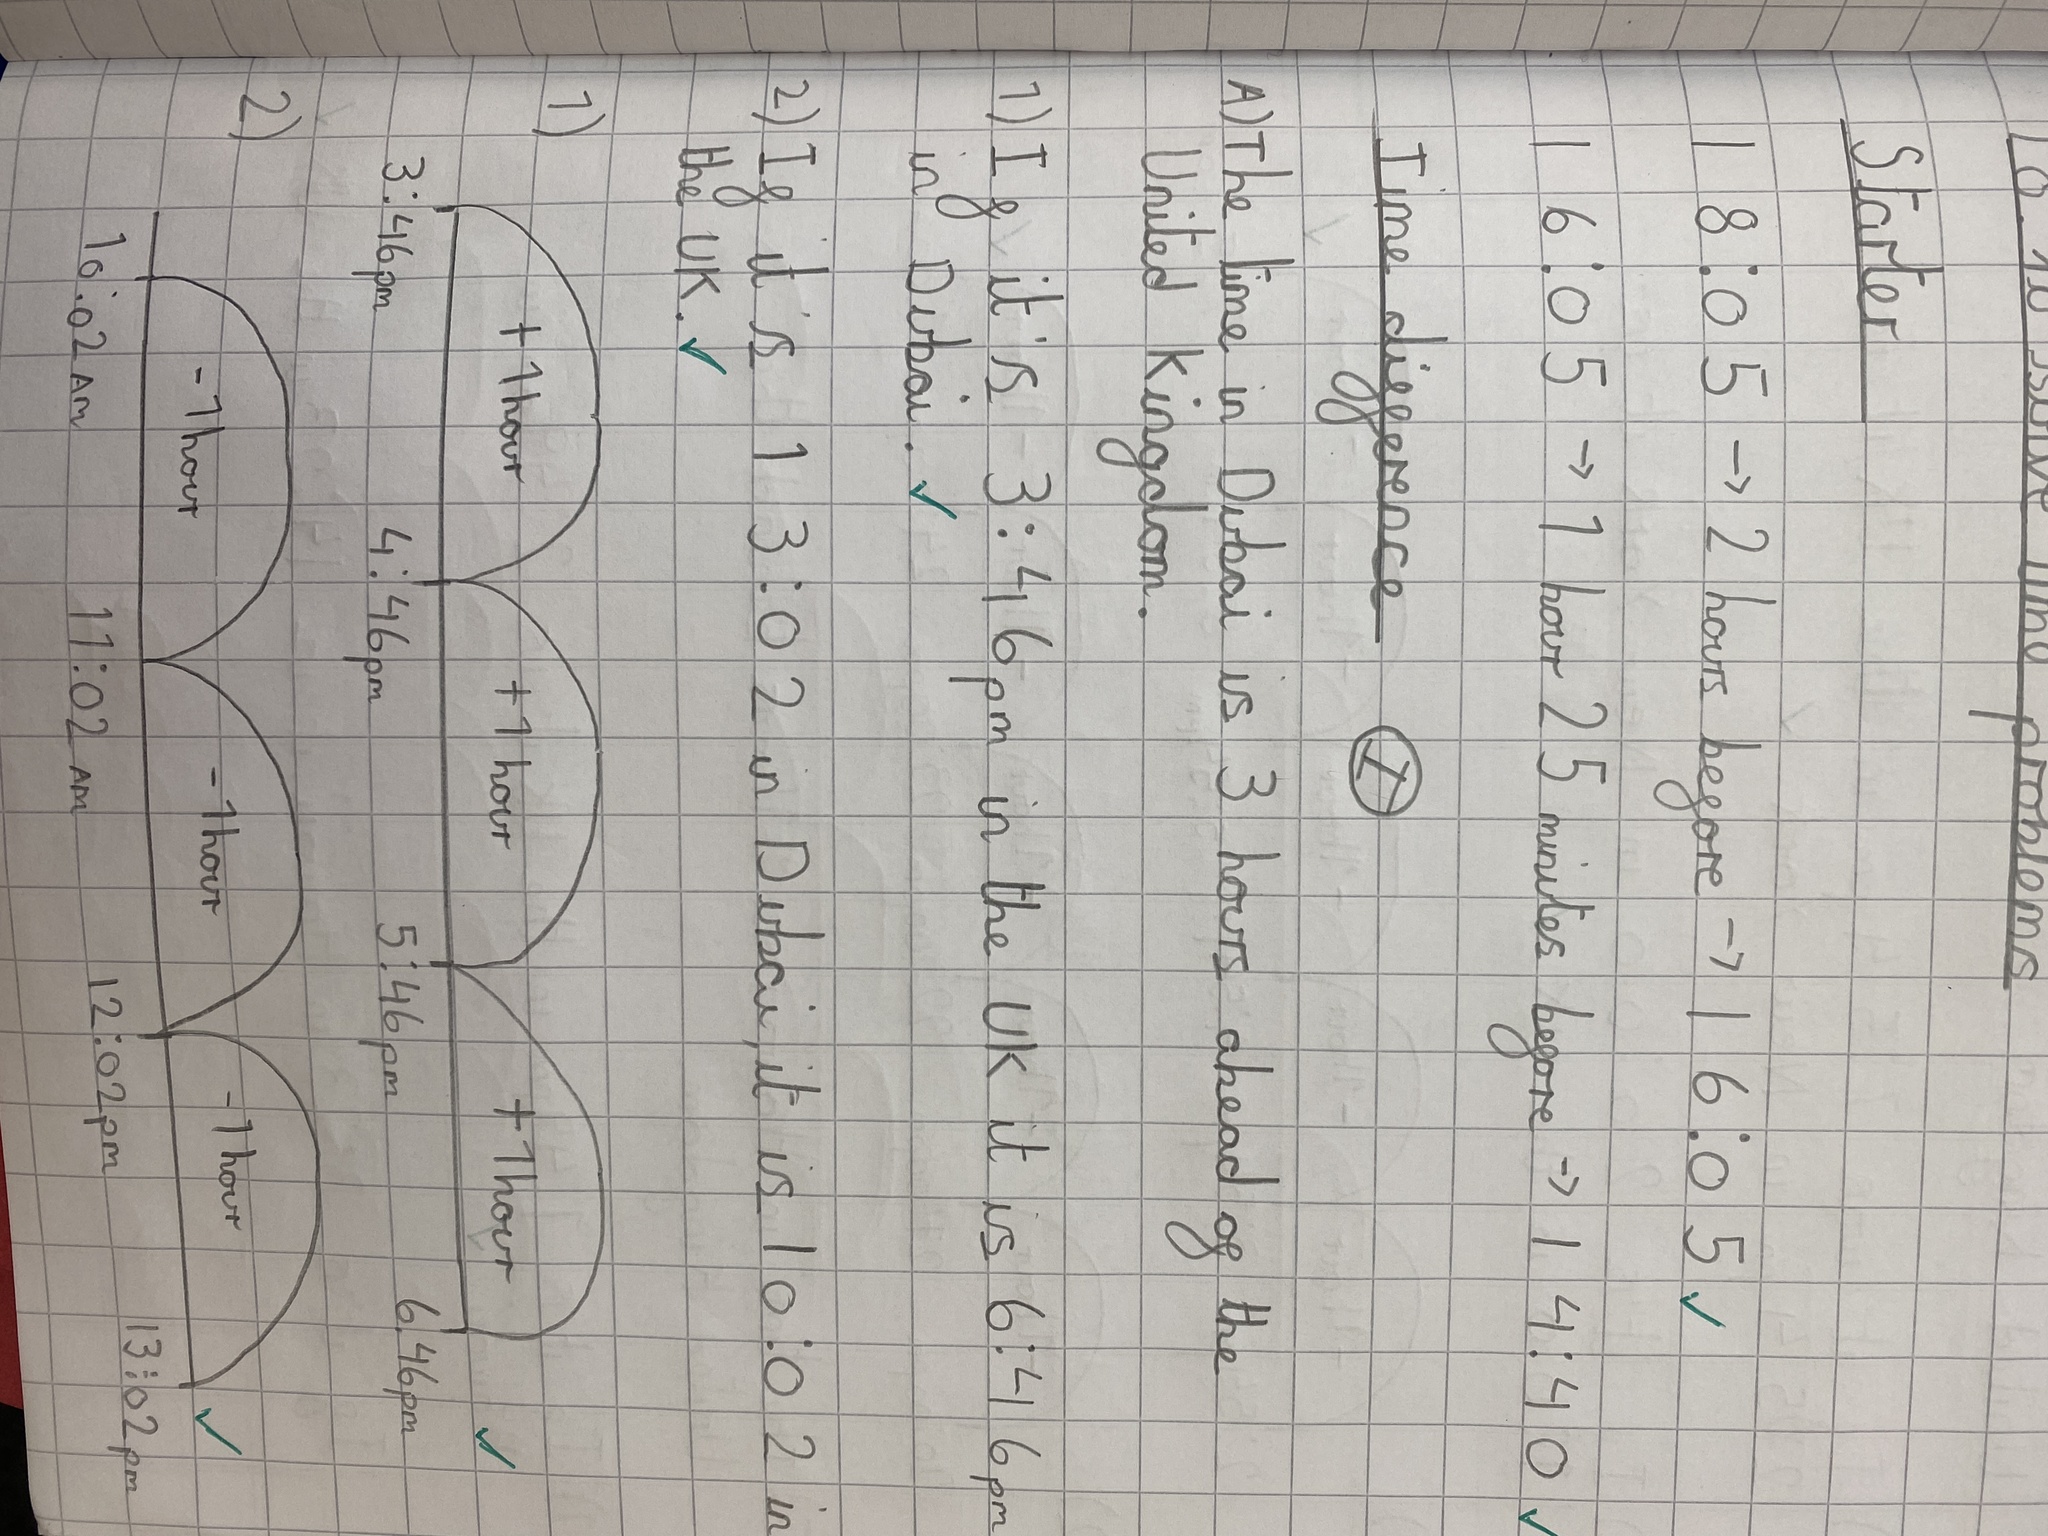 LO: To solve time problems
Starter
18:05 → 2 hours begore → 16:05 ✓
16:05 → 1 hour 25 minutes begore → 14:40 ✓
Time diggerence
A) The time in Dubai is 3 hours ahead og the
United Kingdom.
1) Ig it is 3:46pm in the UK it is 6:46pm
in Dubai. ✓
2) Ig it is 13:02 in Dubai, it is 10:02 in
the UK. ✓
1)
+1hour +1 hour +1hour
3:46pm 4:46pm 5:46pm 6.46pm ✓
2)
-1hour -1hour -1hour
10:02 AM 11:02 AM 12:02pm 13:02pm ✓